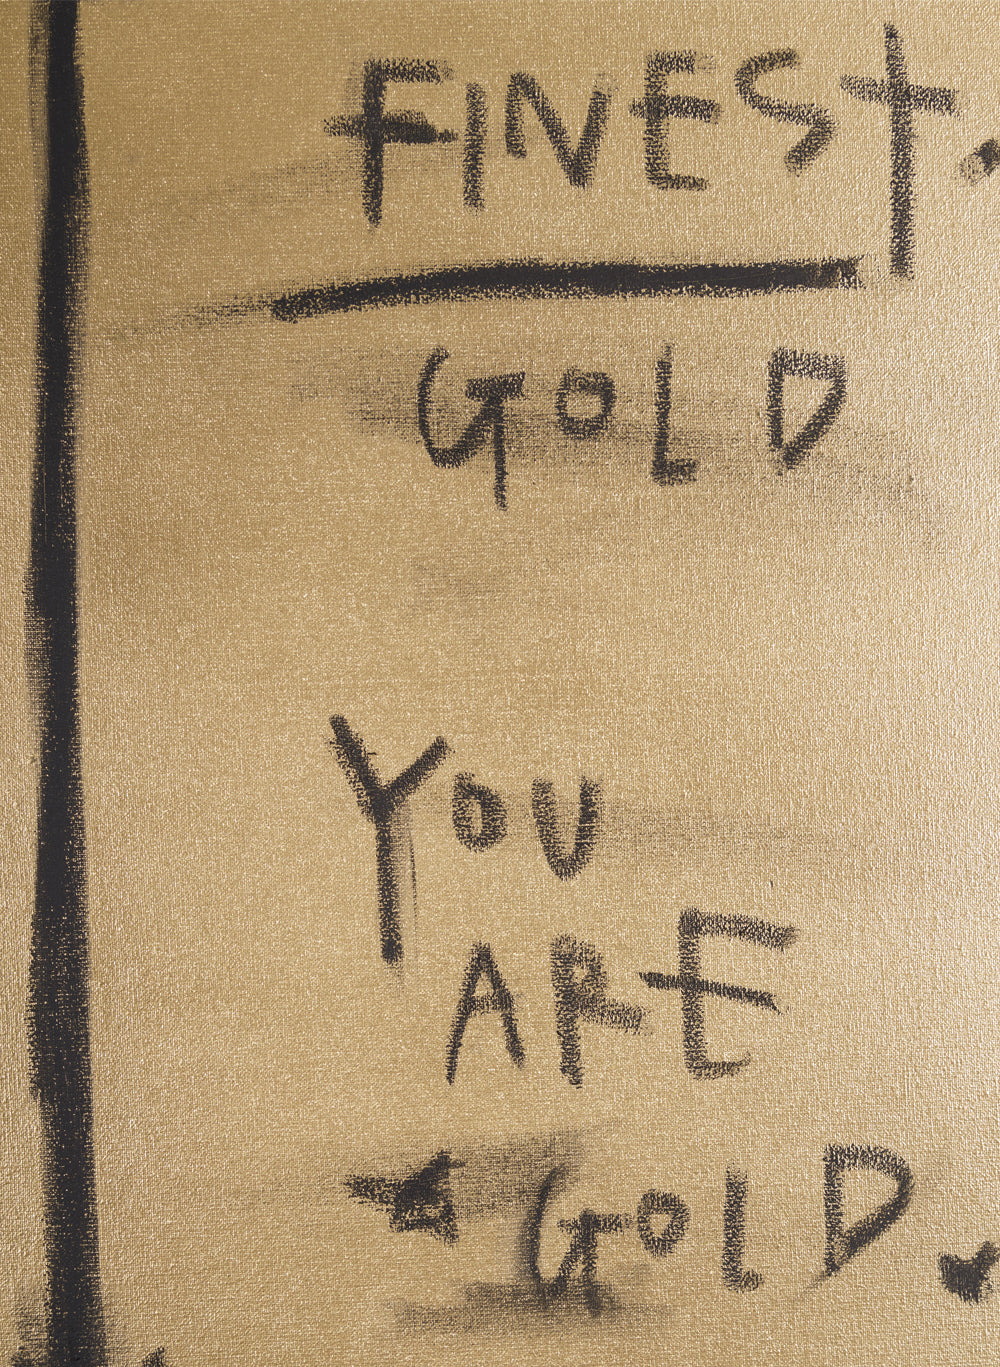 FINEST
GOLD
YOU
ARE
GOLD